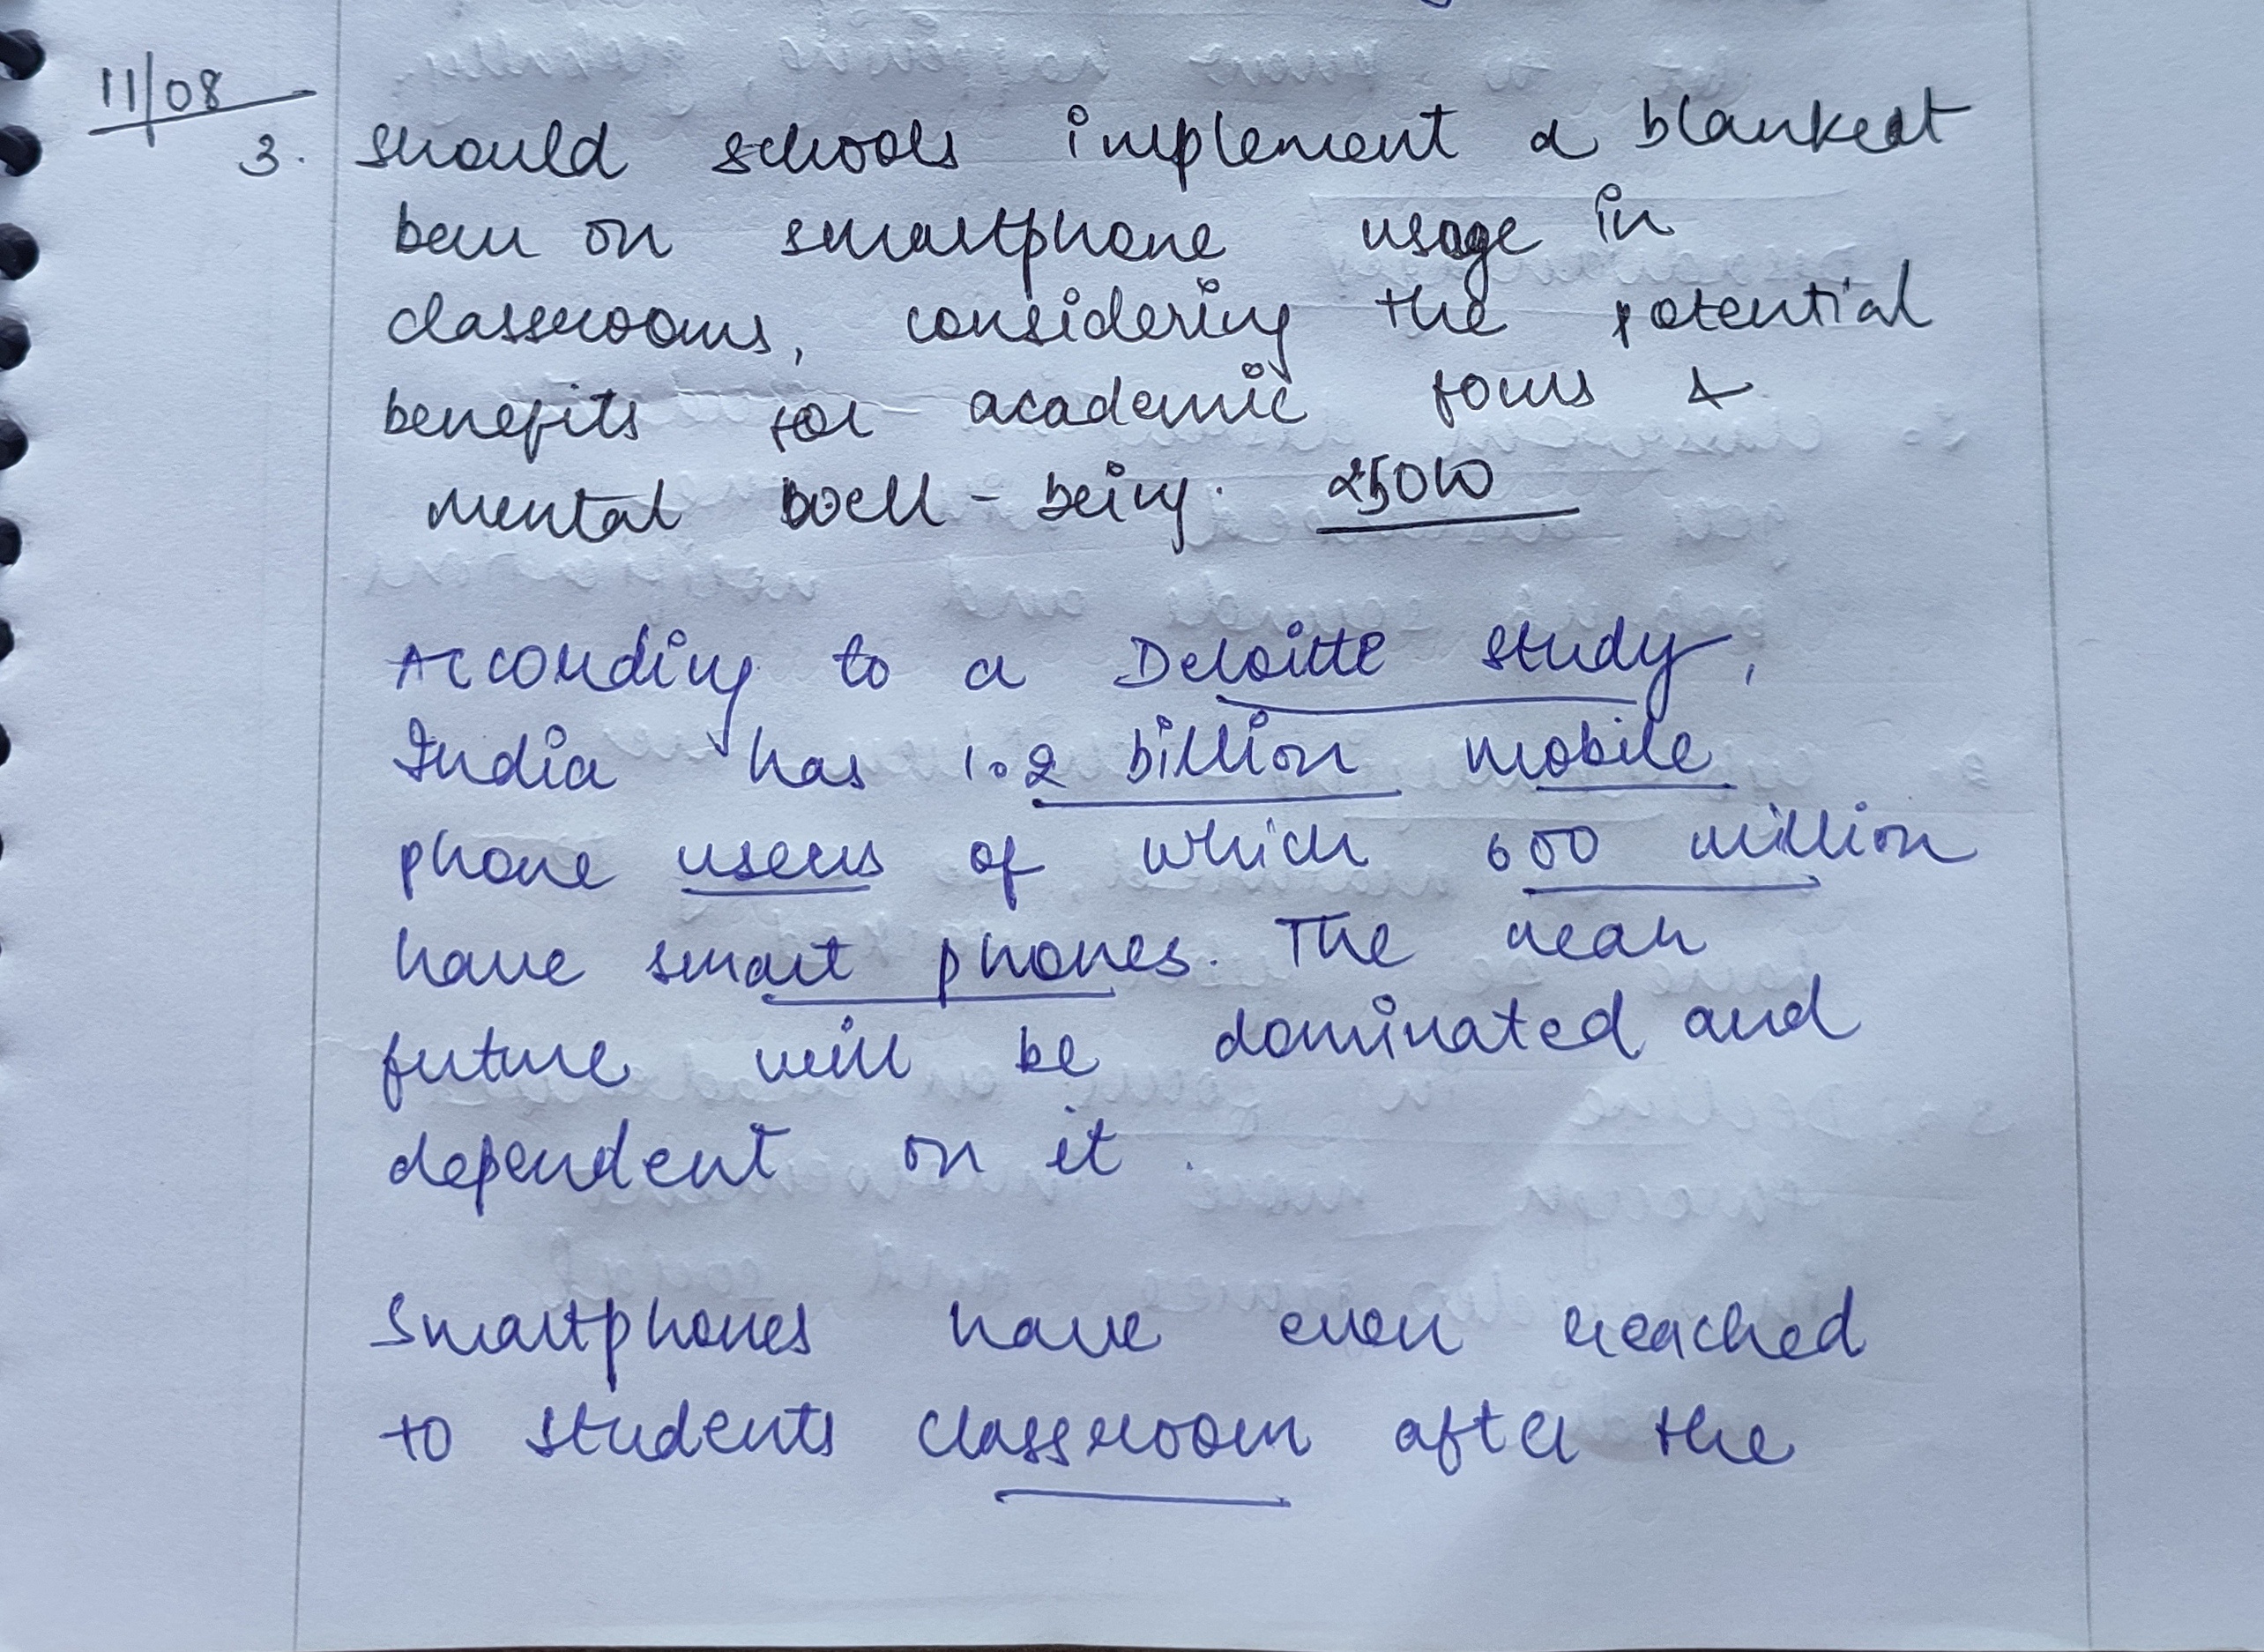 11/08
3. Should schools implement a blanket
ban on smartphone usage in
classrooms, considering the potential
benefits for academic focus &
mental well-being. 250W
According to a Deloitte study,
India has 1.2 billion mobile
phone users of which 600 million
have smart phones. The near
future will be dominated and
dependent on it.
Smartphones have even reached
to students classroom after the